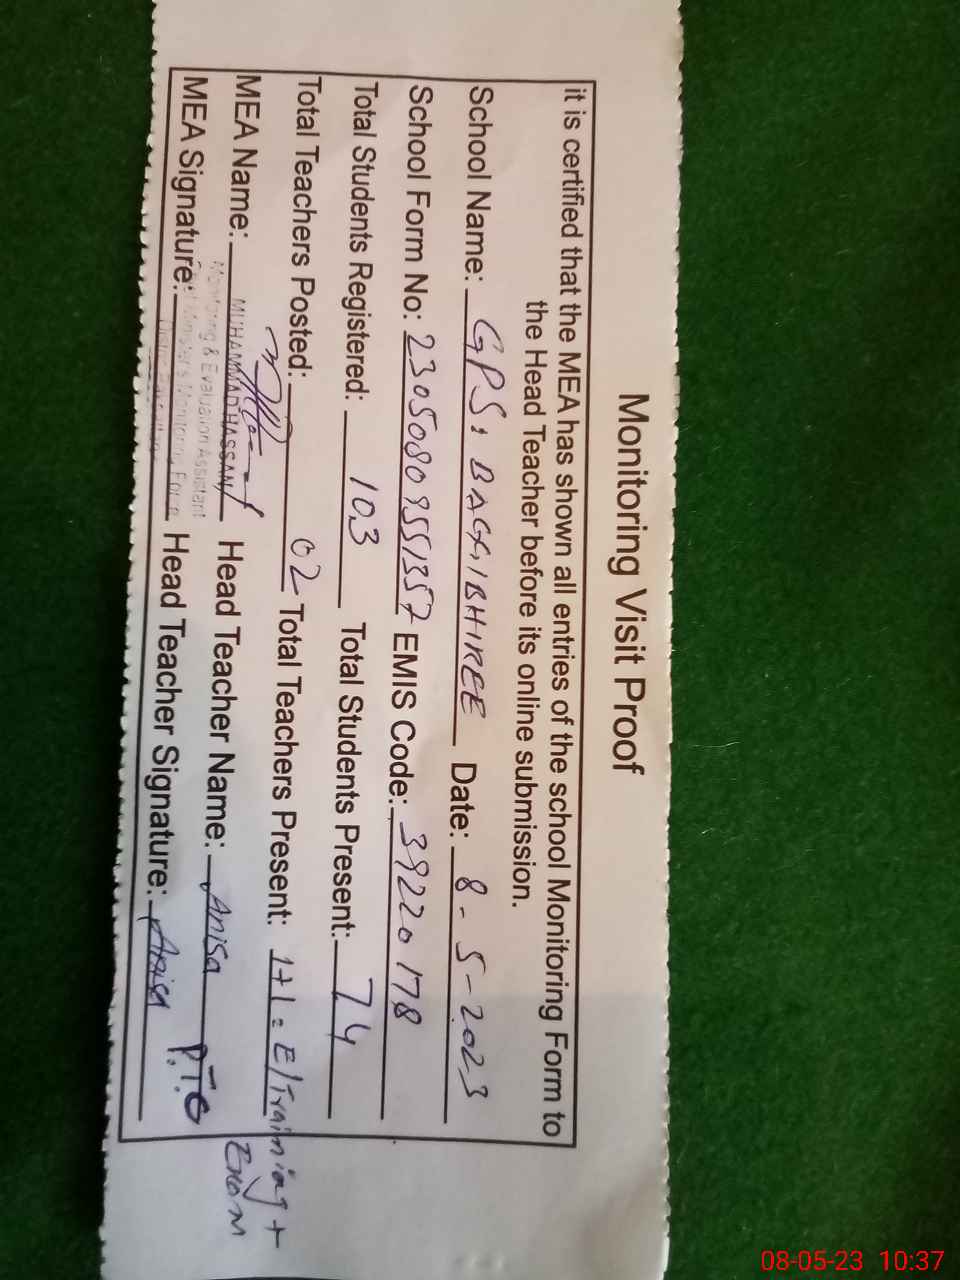 Monitoring Visit Proof
it is certified that the MEA has shown all entries of the school Monitoring Form to
the Head Teacher before its online submission.
School Name: GPS: BAGGIBHIREE Date: 8-5-2023
School Form No: 23050809551357 EMIS Code: 39220178
Total Students Registered: 103 Total Students Present: 74
Total Teachers Posted: 02 Total Teachers Present: 1+1=E/Training +
Exam
MEA Name: MUHAMMAD HASSAN Head Teacher Name: Anisa
Monitoring & Evaluation Assistant
Chief Minister's Monitoring Force
MEA Signature: Head Teacher Signature: Anisa
P.T.O
08-05-23 10:37